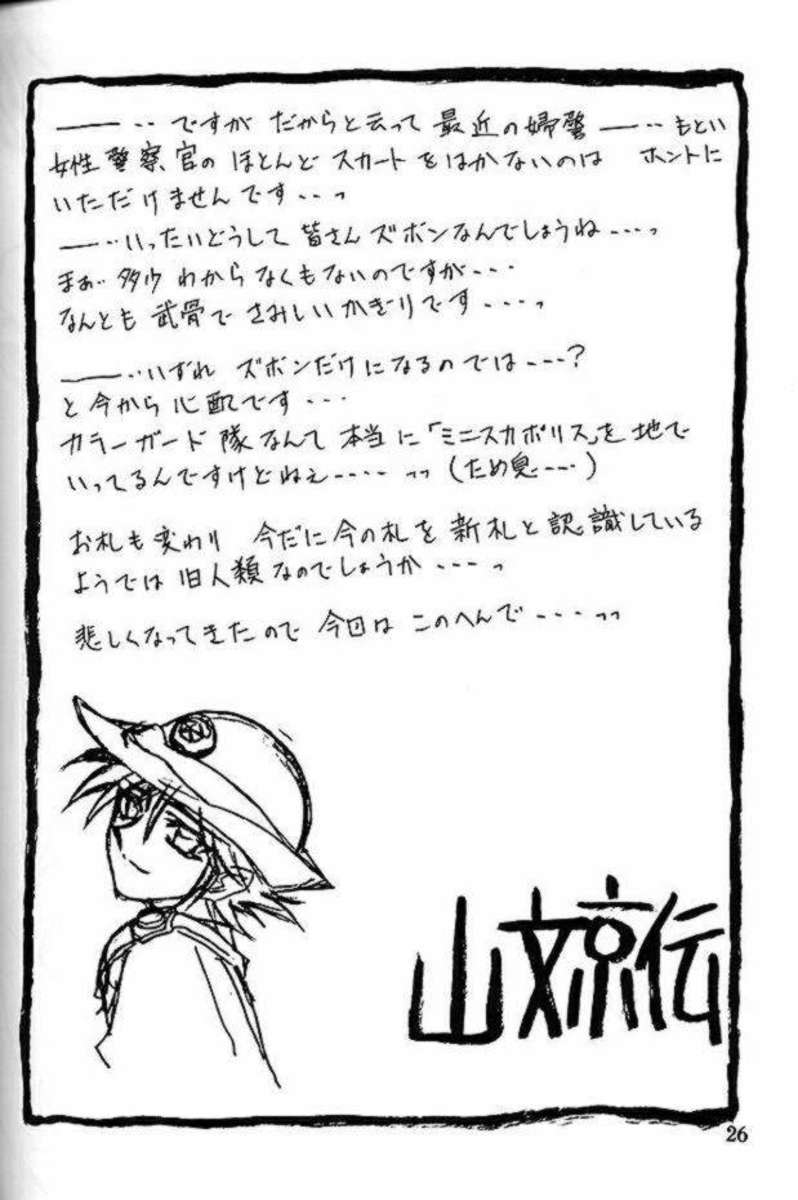 ――‥ですが だからと云って 最近の婦警――‥もとい
女性警察官の ほとんど スカートをはかないのは ホントに
いただけませんです‥‥っ
――‥いったいどうして 皆さん ズボンなんでしょうね‥‥っ
まぁ‥多少 わからなくもないのですが‥‥
なんとも 武骨で さみしいかぎりです‥‥っ
――‥いずれ ズボンだけになるのでは‥‥?
と今から心配です‥‥
カラーガード隊なんて 本当に「ミニスカポリス」を地で
いってるんですけどねぇ‥‥‥っっ(ため息‥‥)
お札も変わり 今だに今の札を新札と認識している
ようでは旧人類なのでしょうか‥‥っ
悲しくなってきたので 今回は このへんで‥‥っっ
山文京伝
26